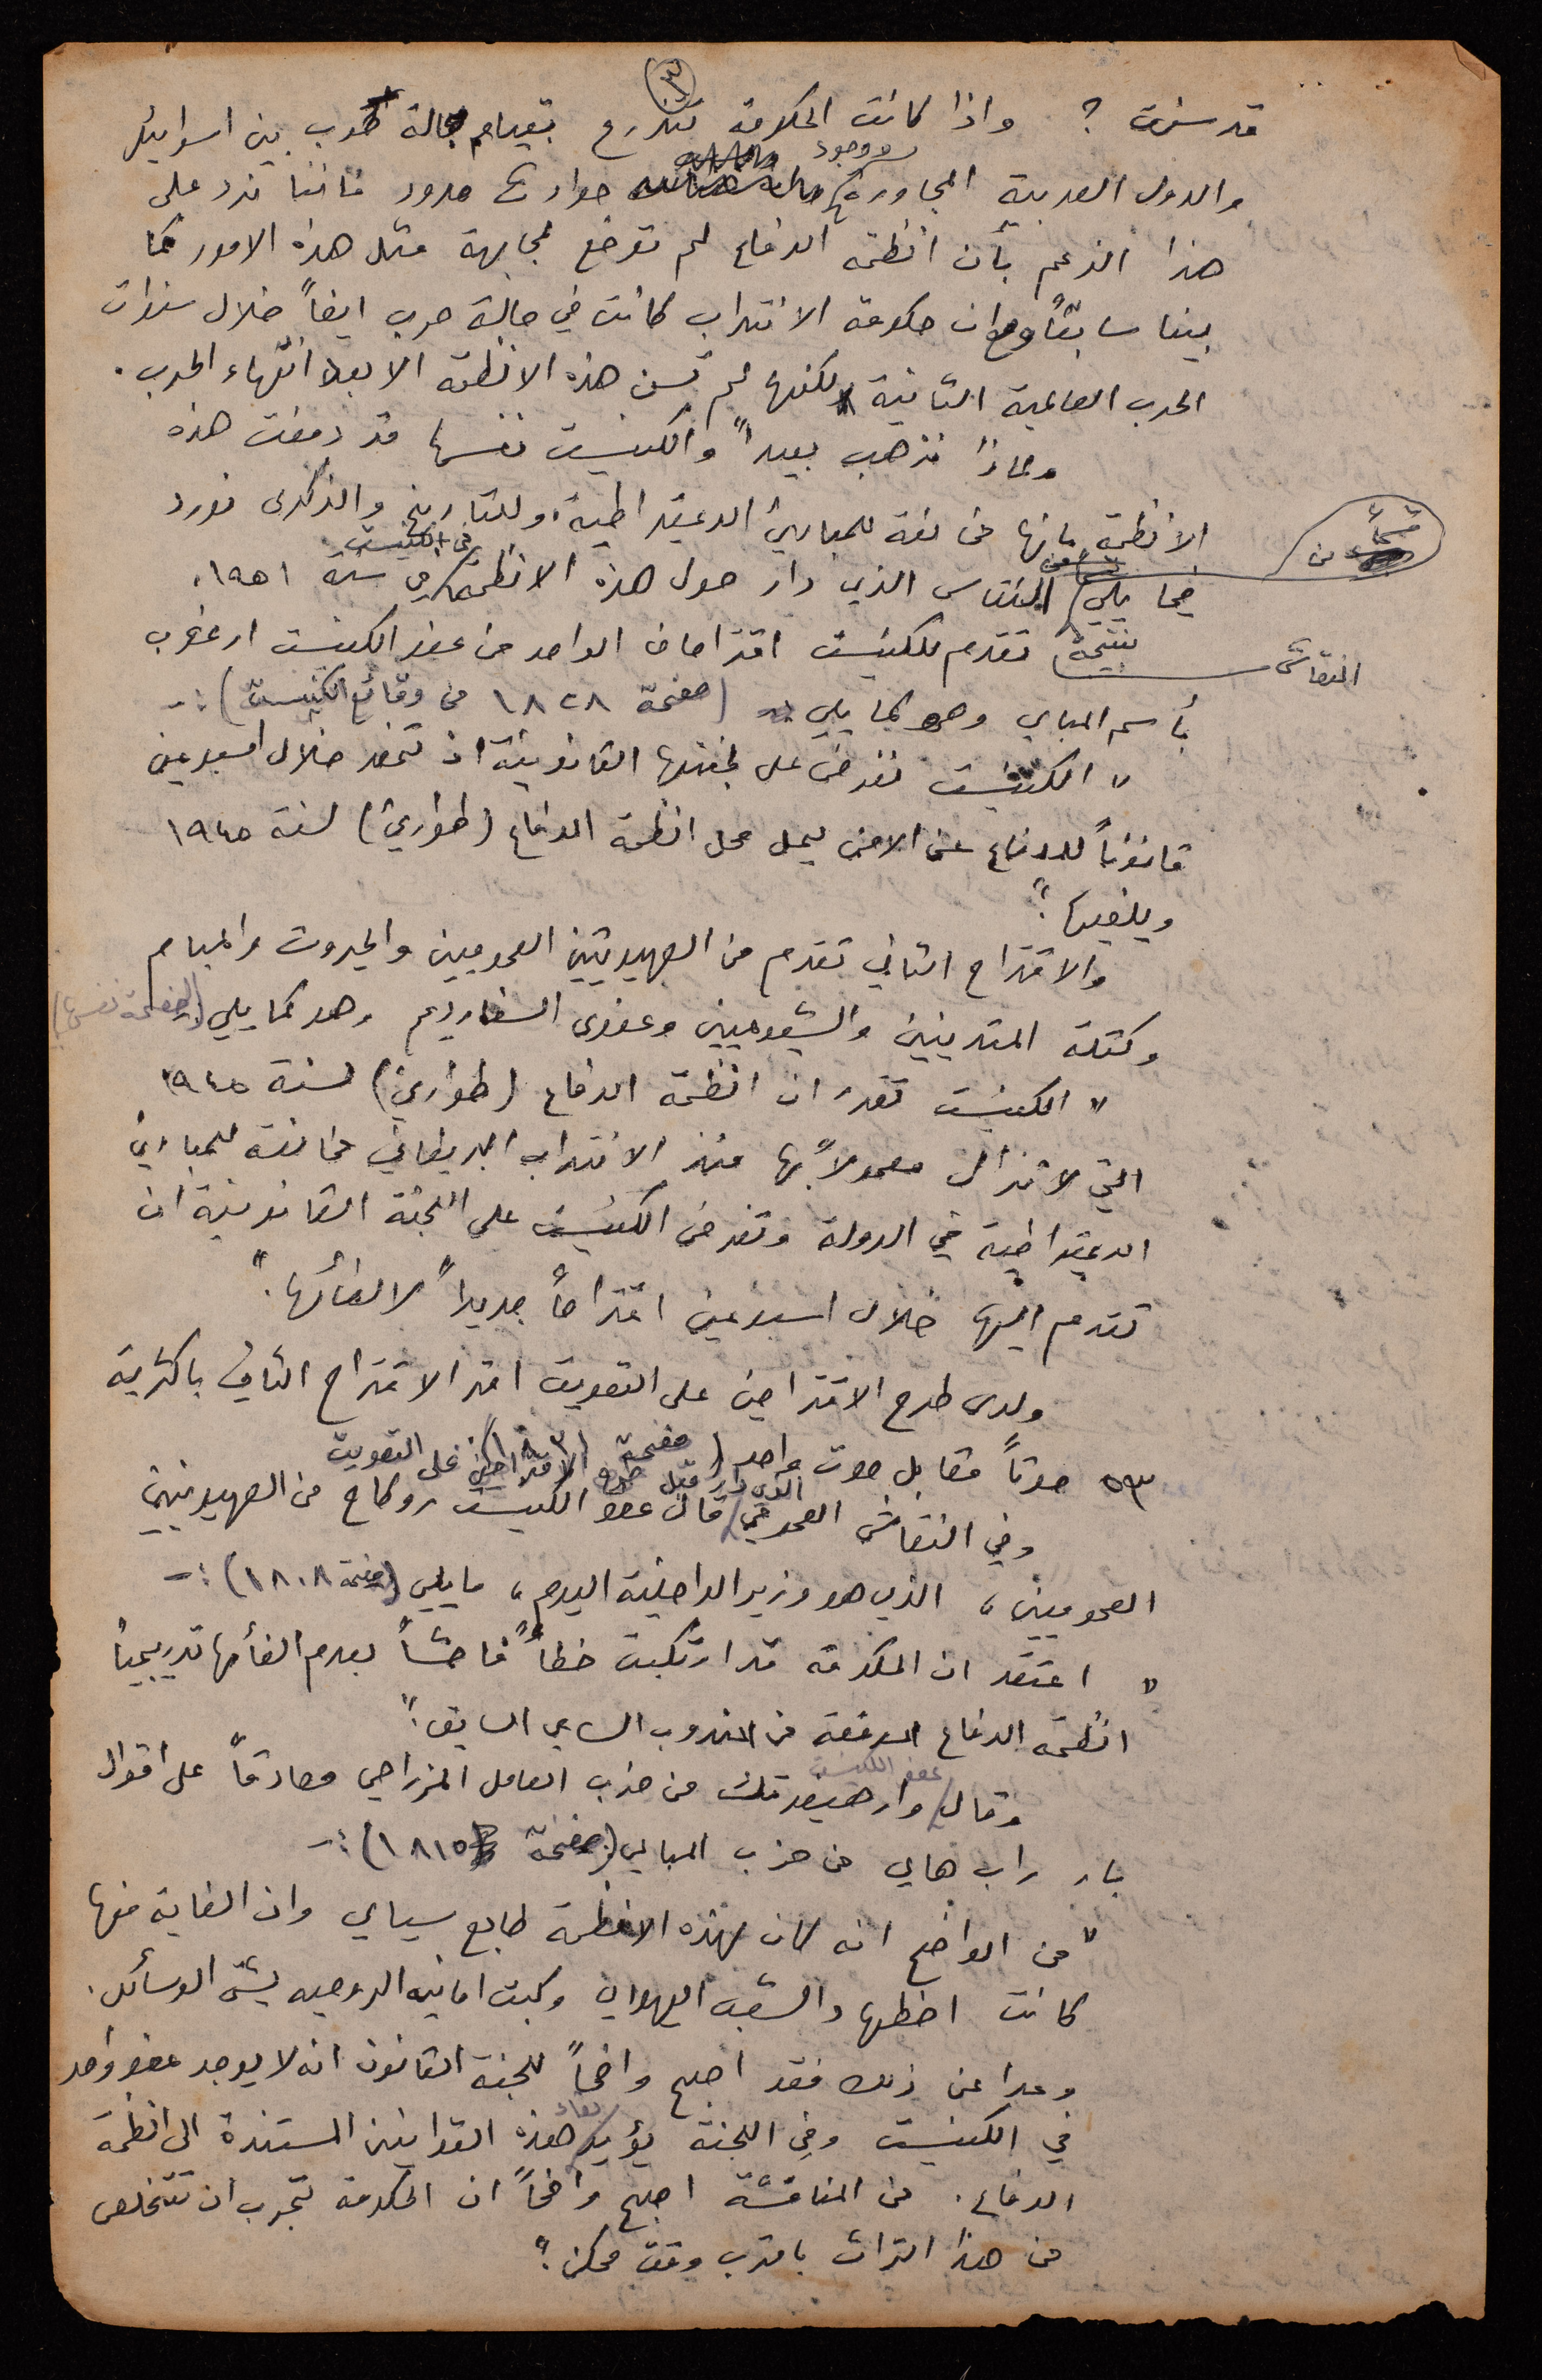 (١٣)
قد سنت ؟ واذا كانت الحكومة تتذرع بقيام حالة حرب بين اسرائيل
والدول العربية المجاورة ووجود حوادث حدود فاننا نرد على
هذا الزعم بأن انظمة الدفاع لم توضع لمجابهة مثل هذه الامور كما
بينا سابقاً وان حكومة الانتداب كانت في حالة حرب ايضاً خلال سنوات
الحرب العالمية الثانية ولكنها لم تسن هذه الانظمة الا بعد انتهاء الحرب .
ولماذا نذهب بعيداً والكنيست نفسها قد دمغت هذه
الانظمة بانها مخالفة للمبادئ الديمقراطية، وللتاريخ والذكرى نورد
فيما يلي قسماً من النقاش الذي دار حول هذه الانظمة في الكنيست في سنة ١٩٥١.
نتيجة النقاش تقدم للكنيست اقتراحان الواحد من عضو الكنيست ارغوب
بأسم المباي وهو كما يلي (صفحة ١٨٢٨ من وقائع الكنيست) :-
" الكنيست تفرض على لجنتها القانونية ان تحضر خلال اسبوعين
قانوناً للدفاع عن الامن ليحل محل انظمة الدفاع (طوارئ) لسنة ١٩٤٥
ويلغيها ."
والاقتراح الثاني تقدم من الصهيونيين العموميين والحيروت والمبام
وكتلة المتدينين والشيوعيين وعضوى السفارديم وهو كما يلي (الصفحة نفسها)
" الكنيست تقرر ان انظمة الدفاع (طوارئ) لسنة ١٩٤٥
التي لا تزال معمولاً بها منذ الانتداب البريطاني مخالفة للمبادئ
الديمقراطية في الدولة وتفرض الكنيست على اللجنة القانونية ان
تقدم اليها خلال اسبوعين اقتراحاً جديداً لالغائها ."
ولدى طرح الاقتراحين على التصويت اقر الاقتراح الثاني باكثرية
٥٣ صوتاً مقابل صوت واحد (صفحة ١٨٣١).
وفي النقاش العمومي الذي دار قبل طرح الاقتراحين على التصويت قال عضو الكنيست روكاح من الصهيونيين
العموميين، الذي هو وزير الداخلية اليوم، ما يلي (صفحة ١٨٠٨) :-
" اعتقد ان الحكومة قد ارتكبت خطأً فاحشاً بعدم الغائها تدريجياً
انظمة الدفاع الموقعة من المندوب السامي السابق ."
وقال عضو الكنيست وارهفتيك من حزب العامل المزراحي مصادقاً على اقوال
بار راب هاي من حزب المباي (صفحة ١٨١٥) :-
" من الواضح انه كان لهذه الانظمة طابع سياسي وان الغاية منها
كانت اضطهاد الشعب اليهودي وكبت امانيه الروحيه بشتى الوسائل .
وعدا عن ذلك فقد اصبح واضحاً للجنة القانون انه لا يوجد عضو واحد
في الكنيست وفي اللجنة يؤيد بقاء هذه القوانين المستندة الى انظمة
الدفاع . من المناقشة اصبح واضحاً ان الحكومة تجرب ان تتخلص
من هذا التراث باقرب وقت ممكن ."